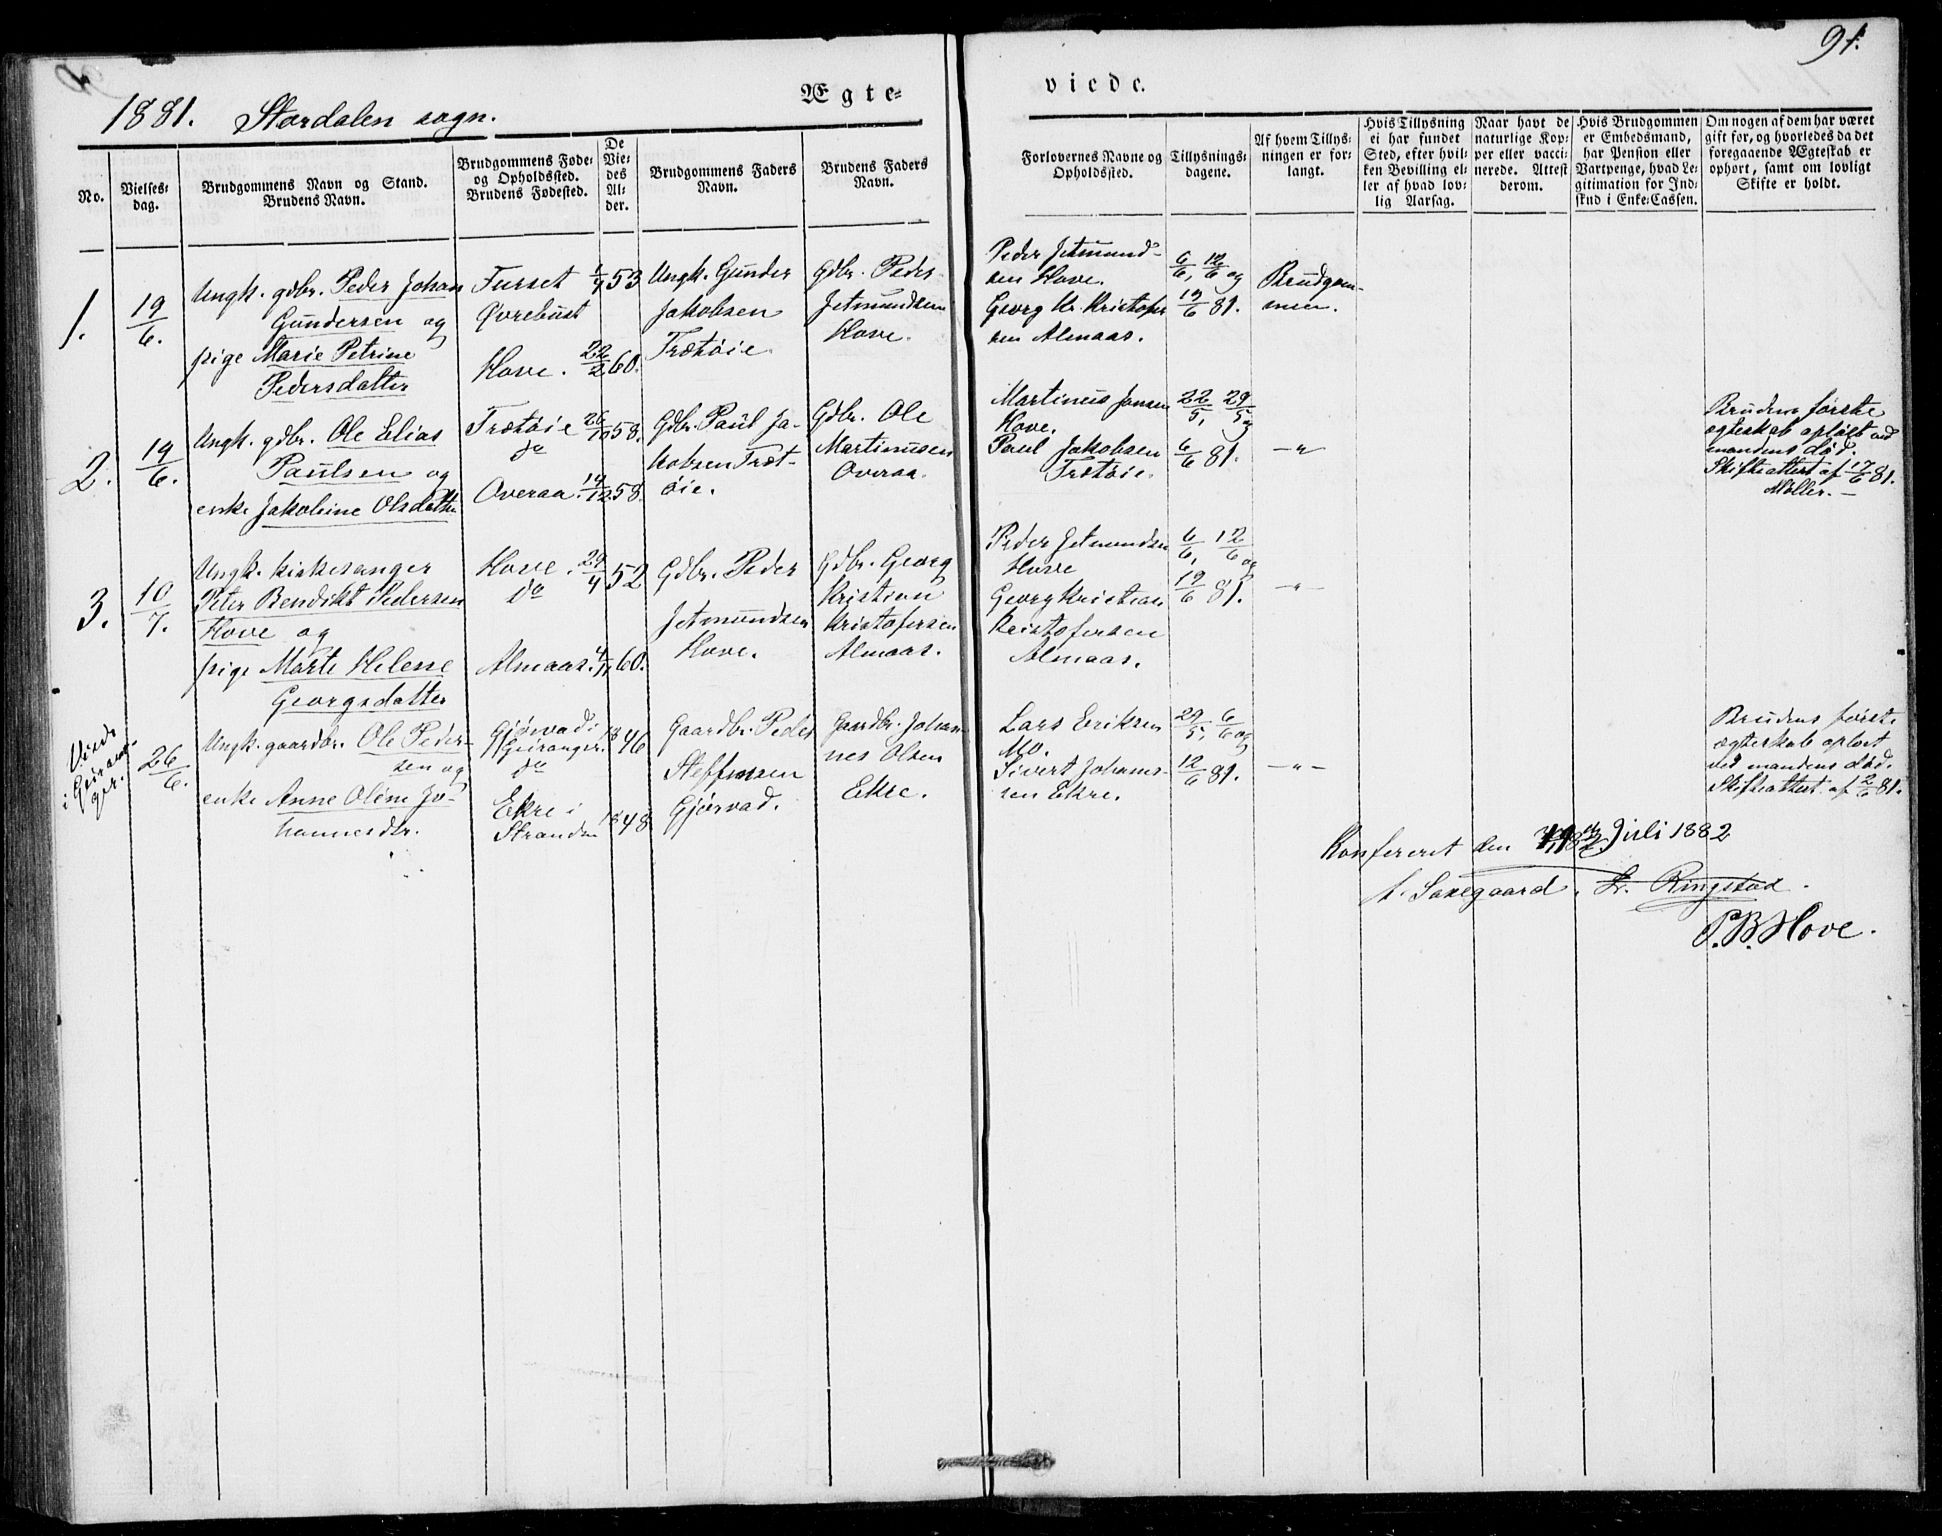 91.
Ægte=
viede.
1881. Stordalen sogn.
No.
Vielses=
dag.
Brudgommens Navn og Stand.
Brudens Navn.
Brudgommens Føde=
og Opholdssted.
Brudens Fødested.
De
Vie=
des
Al=
der.
Brudgommens Faders
Navn.
Brudens Faders
Navn.
Forlovernes Navne og
Opholdssted.
Tillysnings=
dagene.
Af hvem Tillys=
ningen er for=
langt.
Hvis Tillysning
ei har fundet
Sted, efter hvil=
ken Bevilling el=
ler af hvad lov=
lig Aarsag.
Naar havt de
naturlige Kop=
per eller vacci=
nerede. Attest
derom.
Hvis Brudgommen
er Embedsmand,
har Pension eller
Vartpenge, hvad Le=
gitimation for Ind=
skud i Enke=Cassen.
Om nogen af dem har været
gift før, og hvorledes da det
foregaaende Ægteskab er
ophørt, samt om lovligt
Skifte er holdt.
1.
19/6.
Ungk. gdbr. Peder Johan
Gundersen og
pige Marie Petrine
Pedersdatter
Furset
Øvrebust
Hove.
53
22/2 60.
Ungk. Gunder
Jakobsen
Trætøie
Gdbr. Peder
Jetmundsen
Hove.
Peder Jetmund-
sen Hove.
Georg Kr. Kristofer
sen Almaas.
6/6, 12/6 og
19/6 81.
Brudgom-
men.
2.
19/6.
Ungk. gdbr. Ole Elias
Paulsen og
enke Jakoline Olsdatter
Trætøie
do
Overaa.
26/10 58.
14/12 58.
Gdbr. Paul Ja-
kobsen Træt-
øie.
Gdbr. Ole
Martinusen
Overaa.
Martinus Jansen
Hove.
Paul Jakobsen
Trætøie.
22/5, 29/5 og
6/6 81.
-"-
Brudens første
ægteskab opløst ved
mandens død.
Skifteattest af 17/6 81.
Møller. -
3.
10/7.
Ungk. kirkesanger
Peter Bendikt Pedersen
Hove og
pige Marte Helene
Georgsdatter
Hove.
do
Almaas.
29/4 52
4/11 60.
Gdbr. Peder
Jetmundsen
Hove.
Gdbr. Georg
Kristian
Kristofersen
Almaas.
Peder Jetmundsen
Hove
Georg Kristian
Kristofersen
Almaas.
6/6, 12/6 og
19/6 81.
-"-
Viede
i Geiran-
ger.
26/6.
Ungk. gaardbr. Ole Peder-
sen og
enke Anne Oline Jo-
hannesdtr.
Gjørvad i
Geiranger.
do
Ekre i
Stranden
1846
1848
Gaardbr. Peder
Steffensen
Gjørvad.
Gaardbr. Johan-
nes Olsen
Ekre.
Lars Eriksen
Mo.
Sivert Johans-
sen Ekre.
29/5, 6/6 og
12/6 81.
-"-
Brudens første
ægteskab opløst
ved mandens død.
Skifteattest af 2/6 81.
Konfereret den Juli 1882
Saxegaard. Kr. Ringstad.
P. B. Hove.